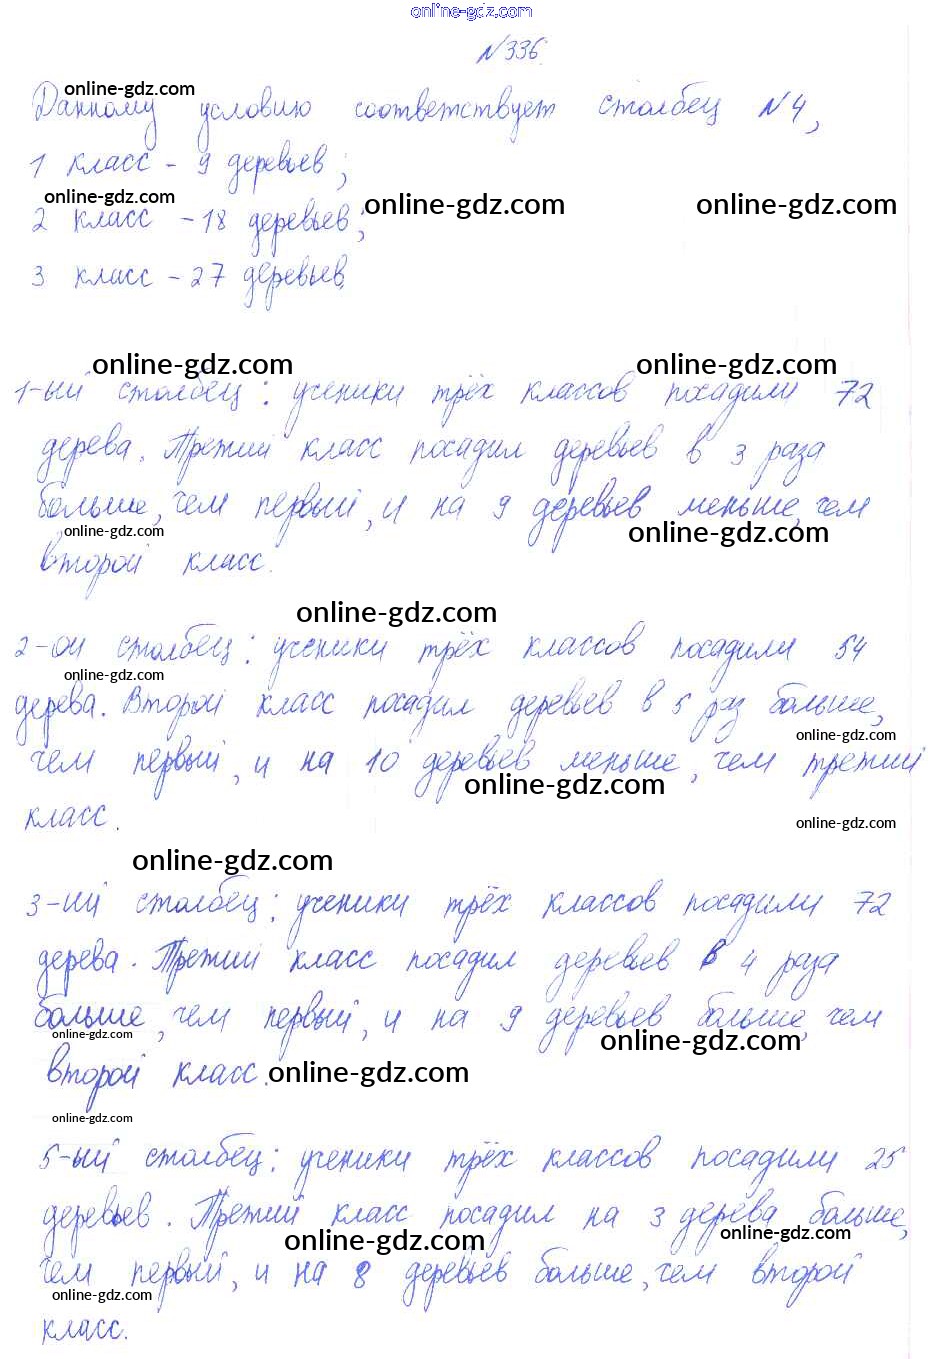 online-gdz.com
№336.
online-gdz.com
Данному условию соответствует столбец №4,
1 класс - 9 деревьев;
online-gdz.com online-gdz.com online-gdz.com
2 класс - 18 деревьев;
3 класс - 27 деревьев.
online-gdz.com online-gdz.com
1-ый столбец: ученики трёх классов посадили 72
дерева. Третий класс посадил деревьев в 3 раза
больше, чем первый, и на 9 деревьев меньше, чем
online-gdz.com online-gdz.com
второй класс.
online-gdz.com
2-ой столбец: ученики трёх классов посадили 54
online-gdz.com
дерева. Второй класс посадил деревьев в 5 раз больше,
online-gdz.com
чем первый, и на 10 деревьев меньше, чем третий
online-gdz.com
класс.
online-gdz.com
online-gdz.com
3-ий столбец: ученики трёх классов посадили 72
дерева. Третий класс посадил деревьев в 4 раза
больше, чем первый, и на 9 деревьев больше, чем
online-gdz.com online-gdz.com
второй класс.
online-gdz.com
online-gdz.com
5-ый столбец: ученики трёх классов посадили 25
деревьев. Третий класс посадил на 3 дерева больше,
online-gdz.com online-gdz.com
чем первый, и на 8 деревьев больше, чем второй
online-gdz.com
класс.